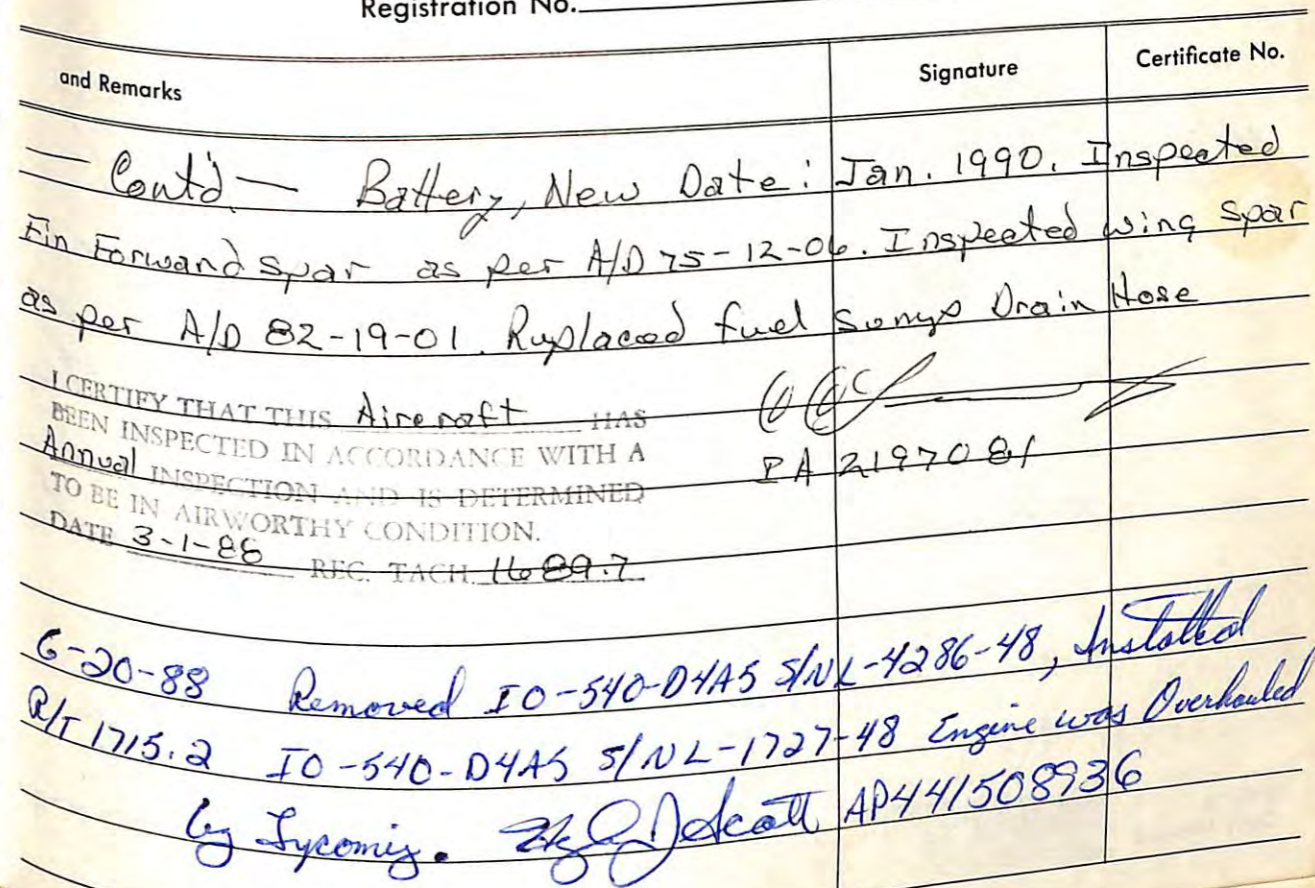 Registration No.
and Remarks Signature Certificate No.
— Cont'd — Battery, New Date: Jan. 1990. Inspected
Fin Forward Spar as per A/D 75-12-06. Inspected wing Spar
as per A/D 82-19-01. Replaced fuel Sump Drain Hose
I CERTIFY THAT THIS Aircraft HAS
BEEN INSPECTED IN ACCORDANCE WITH A
Annual INSPECTION AND IS DETERMINED
IA 2197081
TO BE IN AIRWORTHY CONDITION.
DATE 3-1-88 REC. TACH 1689.7
6-20-88 Removed IO-540-D4A5 S/N L-4286-48, Installed
R/T 1715.2 IO-540-D4A5 S/N L-1727-48 Engine was Overhauled
by Lycoming. Scott AP441508936